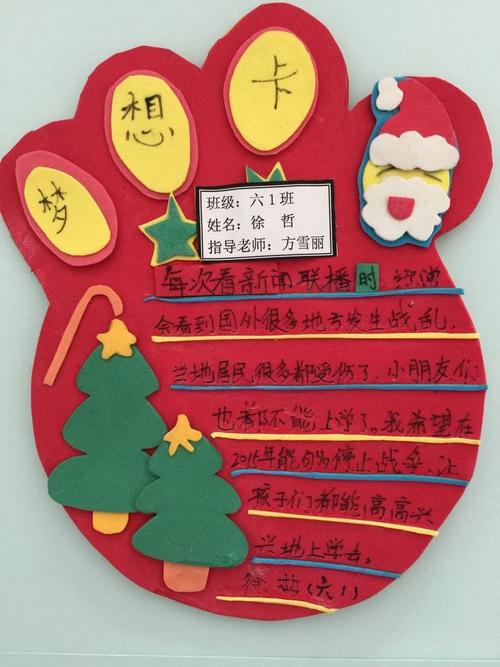 梦想卡
班级：六1班
姓名：徐 哲
指导老师：方雪丽
每次看新闻联播时，经常
会看到国外很多地方发生战乱，
当地居民很多都受伤了，小朋友们
也都不能上学了。我希望在
2015年能够停止战争，让
孩子们都能高高兴
兴地上学去。
徐哲（六1）